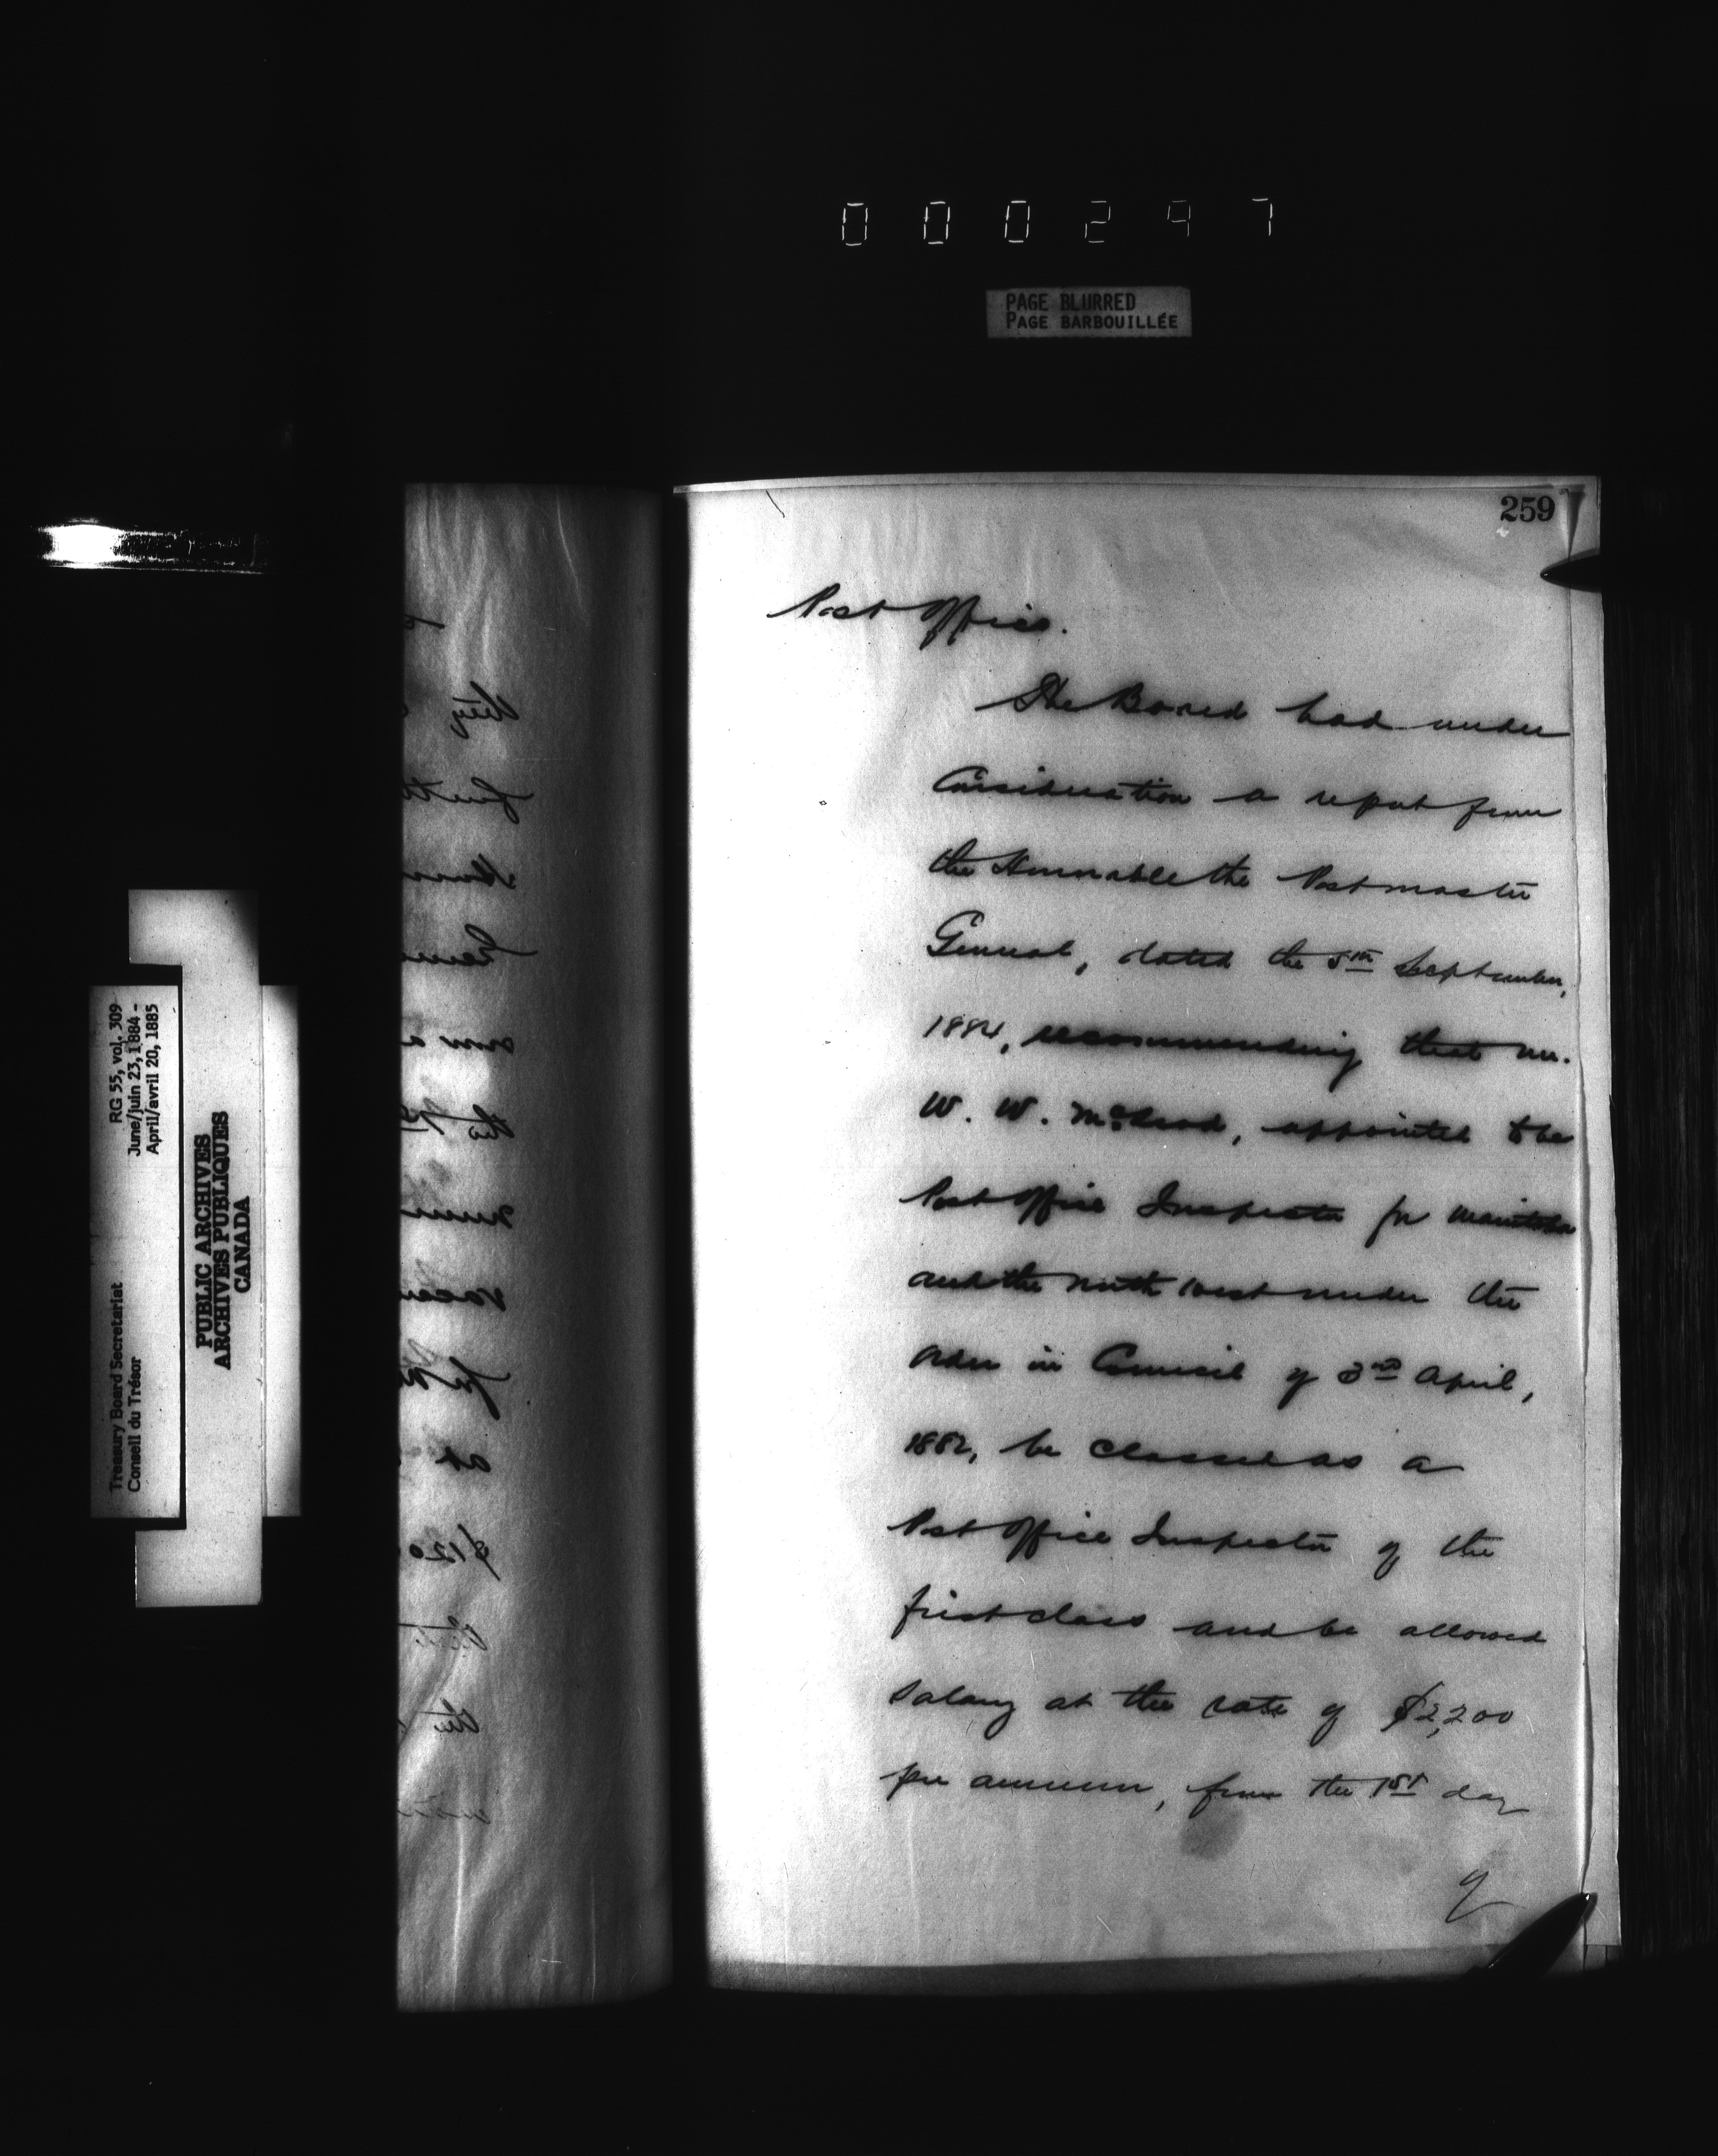 000297
PAGE BLURRED
PAGE BARBOUILLÉE
259
Post Office.
The Board had under
Consideration a report from
the Honorable the Postmaster
General, dated the 5th September,
1884, recommending that Mr.
W. W. McLeod, appointed to be
Post Office Inspector for Manitoba
and the North West under the
Order in Council of 3rd April,
1882, be classed as a
Post Office Inspector of the
first class and be allowed
salary at the rate of $2,200
per annum, from the 1st day
of
RG 55, vol. 309
June/juin 23, 1884 -
April/avril 20, 1885
Treasury Board Secretariat
Conseil du Trésor
PUBLIC ARCHIVES
ARCHIVES PUBLIQUES
CANADA